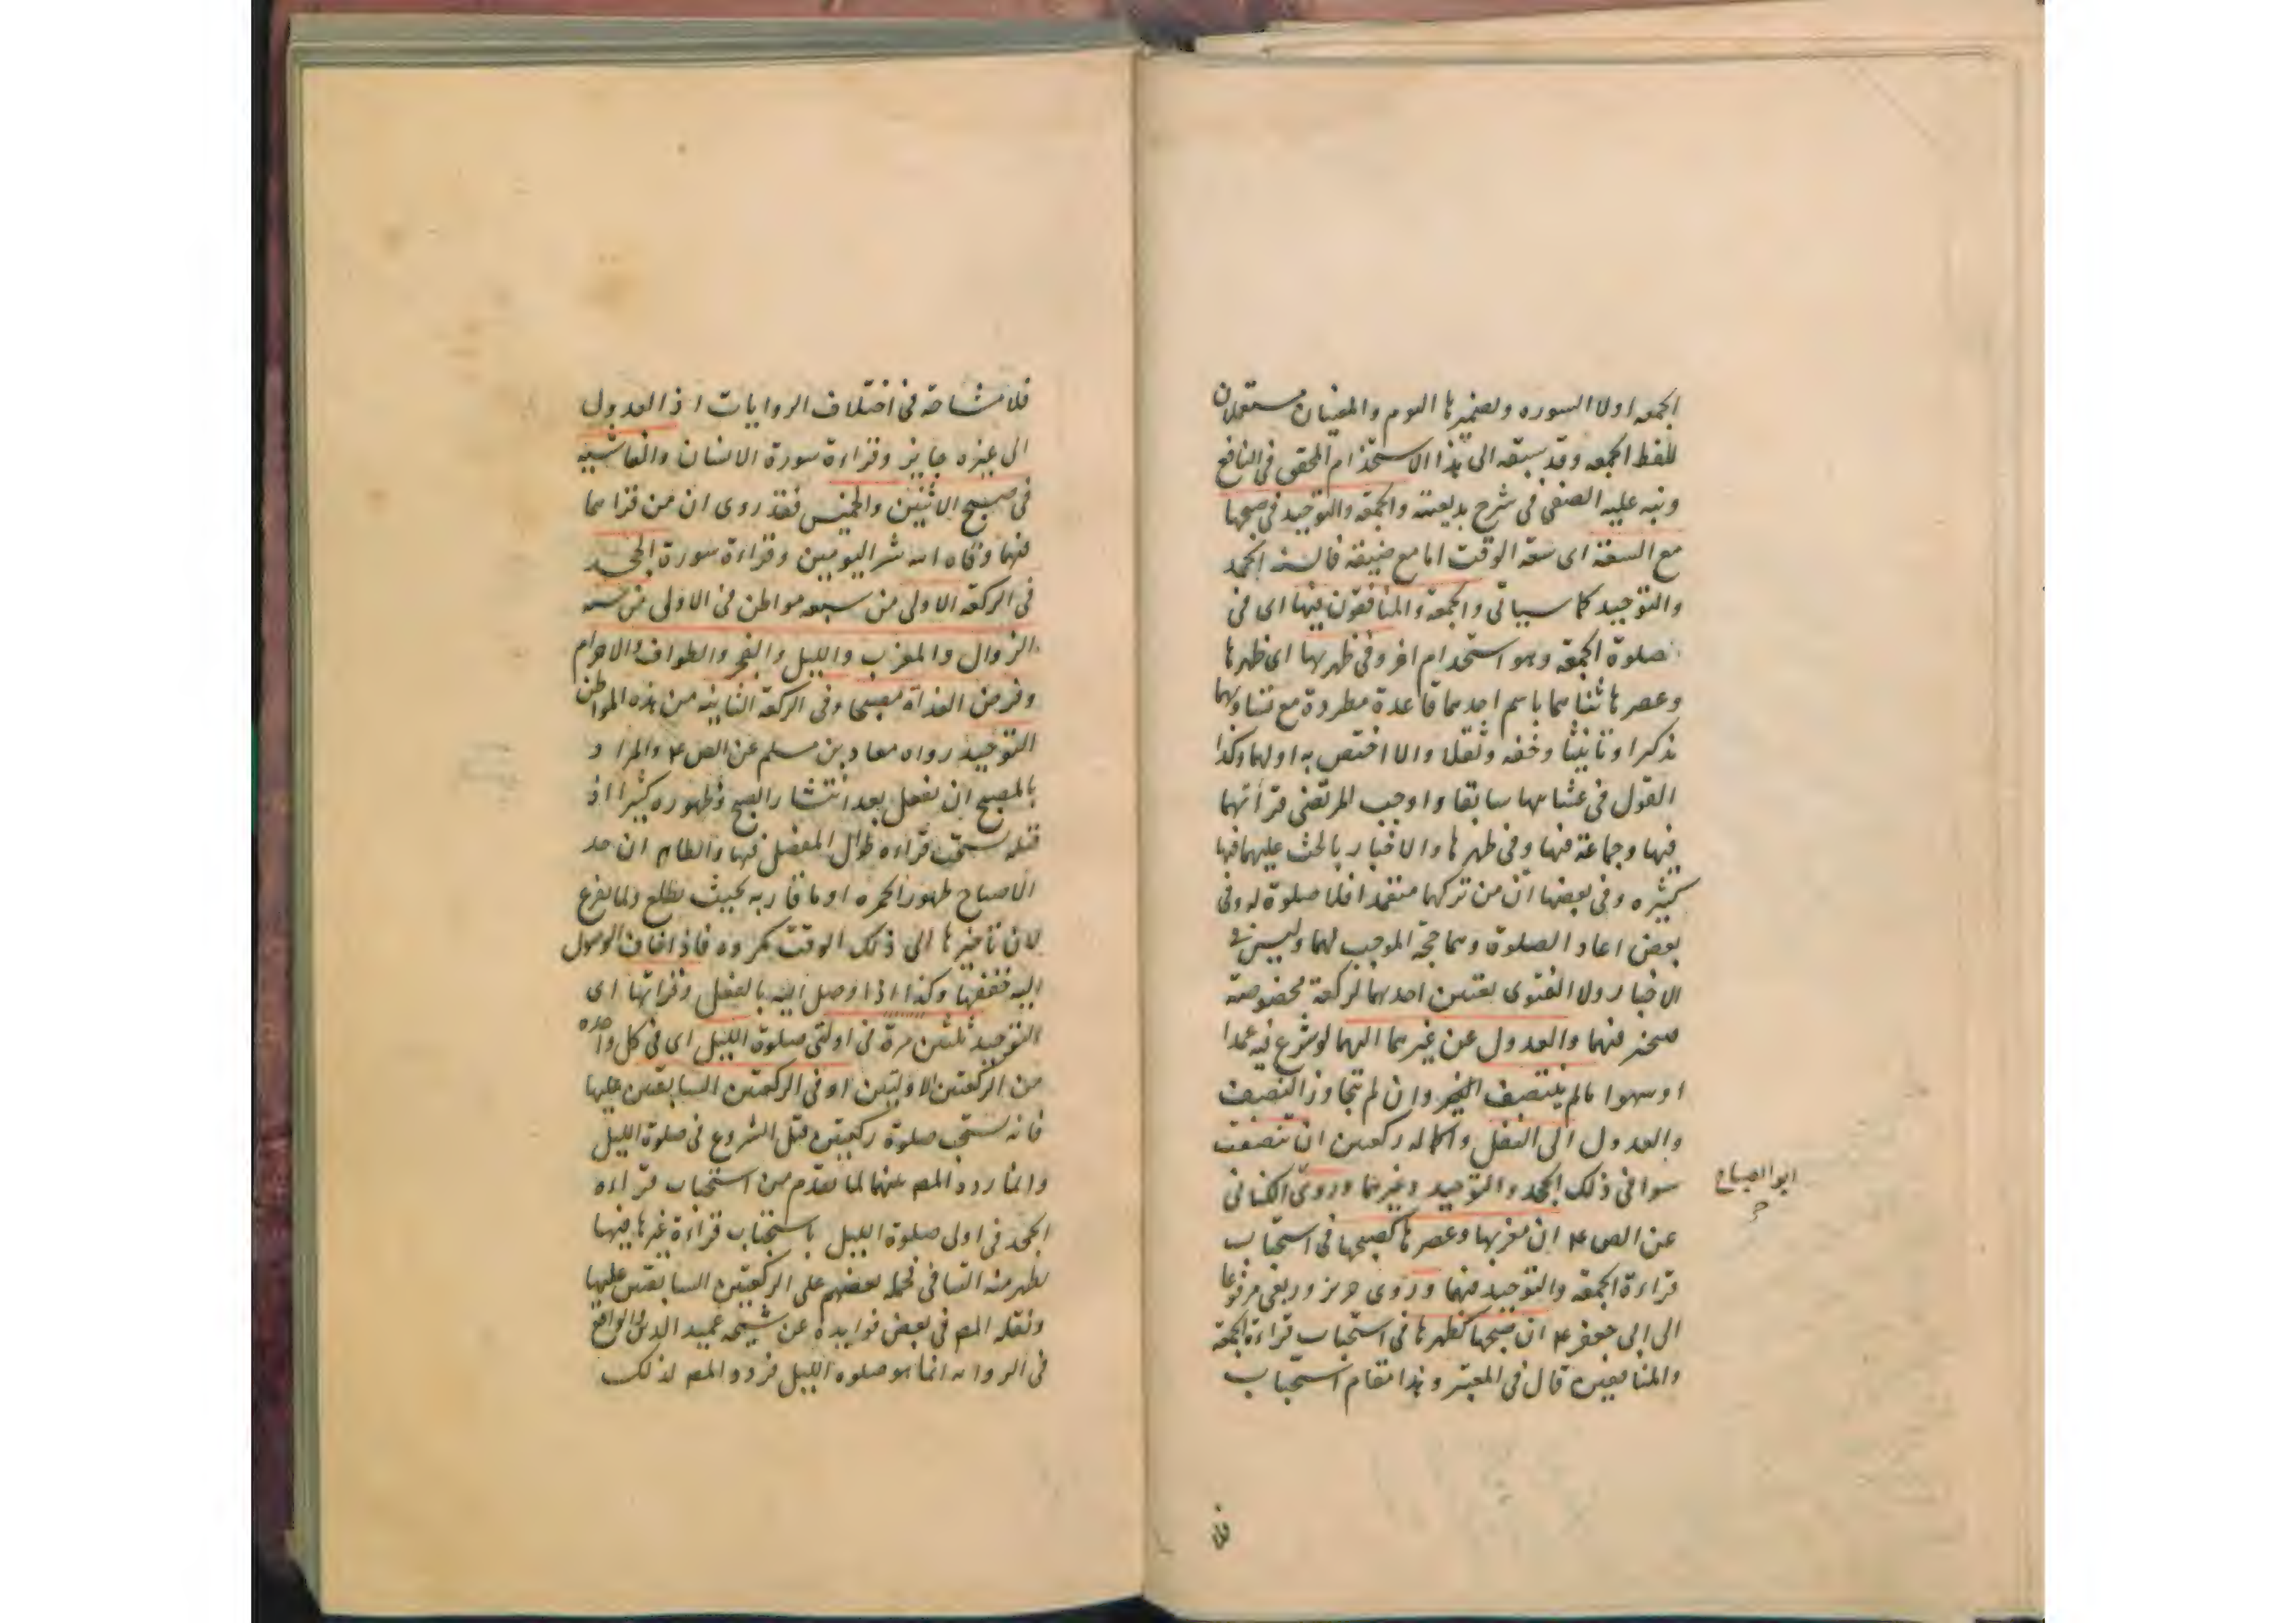 الجمعه اولا السوره وبضميرها اليوم والمعنيان مستقلان
للفظ الجمعه وقد سبقه الى هذا الاستخدام المحقق فى النافع
ونبه عليه الصفى فى شرح بديعته والجمعة والتوحيد فى صبحها
مع السعة اى سعة الوقت اما مع ضيقه فالسنه الجحد
والتوحيد كما سياتى والجمعة والمنافقون فيها اى فى
صلوة الجمعة وهو استخدام اخر وفى ظهريها اى ظهرها
وعصرها ثناهما باسم احدهما قاعدة مطردة مع تساويهما
تذكيرا وتانيثا وخفه وثقلا والا اختص به اولهما وكذا
القول فى عشاىها سابقا واوجب المرتضى قرأتهما
فيها وجماعة فيها وفى ظهرها والاخبار بالحث عليهما فيها
كثيره وفى بعضها ان من تركها متعمدا فلا صلوة له وفى
بعض اعاد الصلوة وهما حجة الموجب لهما وليس فى
الاخبار ولا الفتوى تعيين احدهما لركعة مخصوصة
فيتخير فيهما والعدول عن غيرهما اليهما لو شرع فيه عمدا
او سهوا مالم ينتصف المتخير وان لم تتجاوز النصف
والعدول الى النفل واكماله ركعتين ان تنصفت
سوا فى ذلك الجحد والتوحيد وغيرهما وروى الكنانى
ابو الصباح
عن الص ع ان مغربها وعصرها كصبحها فى استحباب
قراءة الجمعه والتوحيد فيهما وروى حريز وربعى مرفوعا
الى ابى جعفر ع ان صبحها كظهرها فى استحباب قراءة الجمعة
والمنافقين قال فى المعتبر وهذا مقام استحباب
فلا
فلا مشاحة فى اختلاف الروايات اذ العدول
الى غيره جايز وقراءة سورة الانسان والغاشيه
فى صبح الاثنين والخميس فقد روى ان من قراهما
فيهما وقاه الله شر اليومين وقراءة سورة الجحد
فى الركعة الاولى من سبعه مواطن فى الاولى من سنه
الزوال والمغرب والليل والفجر والطواف والاحرام
وفرض الغداة مصبحا وفى الركعة الثانيه من هذه المواطن
التوحيد رواه معاد بن مسلم عن الص ع والمراد
بالمصبح ان تفعل بعد انتشار الصبح وظهوره كثيرا اذ
قبله يستحب قراءه طوال المفصل فيها والظاهر ان حد
الاصباح ظهور الحمره او ما قاربه بحيث تطلع ولما يفرغ
لان تأخيرها الى ذلك الوقت مكروه فاذا خاف الوصول
اليه خففها وكذا اذا وصل اليه بالفعل وقرأتها اى
التوحيد ثلثين مرة فى اولتى صلوة الليل اى فى كل واحده
من الركعتين الاوليتين او فى الركعتين السابقتين عليها
فانه يستحب صلوة ركعتين قبل الشروع فى صلوة الليل
وانما ردد المص بينهما لما تقدم من استحباب قراءه
الجحد فى اولى صلوة الليل باستحباب قراءة غيرها فيها
يظهر منه التنافى فحمله بعضهم على الركعتين السابقتين عليها
ونقله المص فى بعض فوايده عن شيخه عميد الدين والواقع
فى الروايه انما هو صلوه الليل فردد المص لذلك